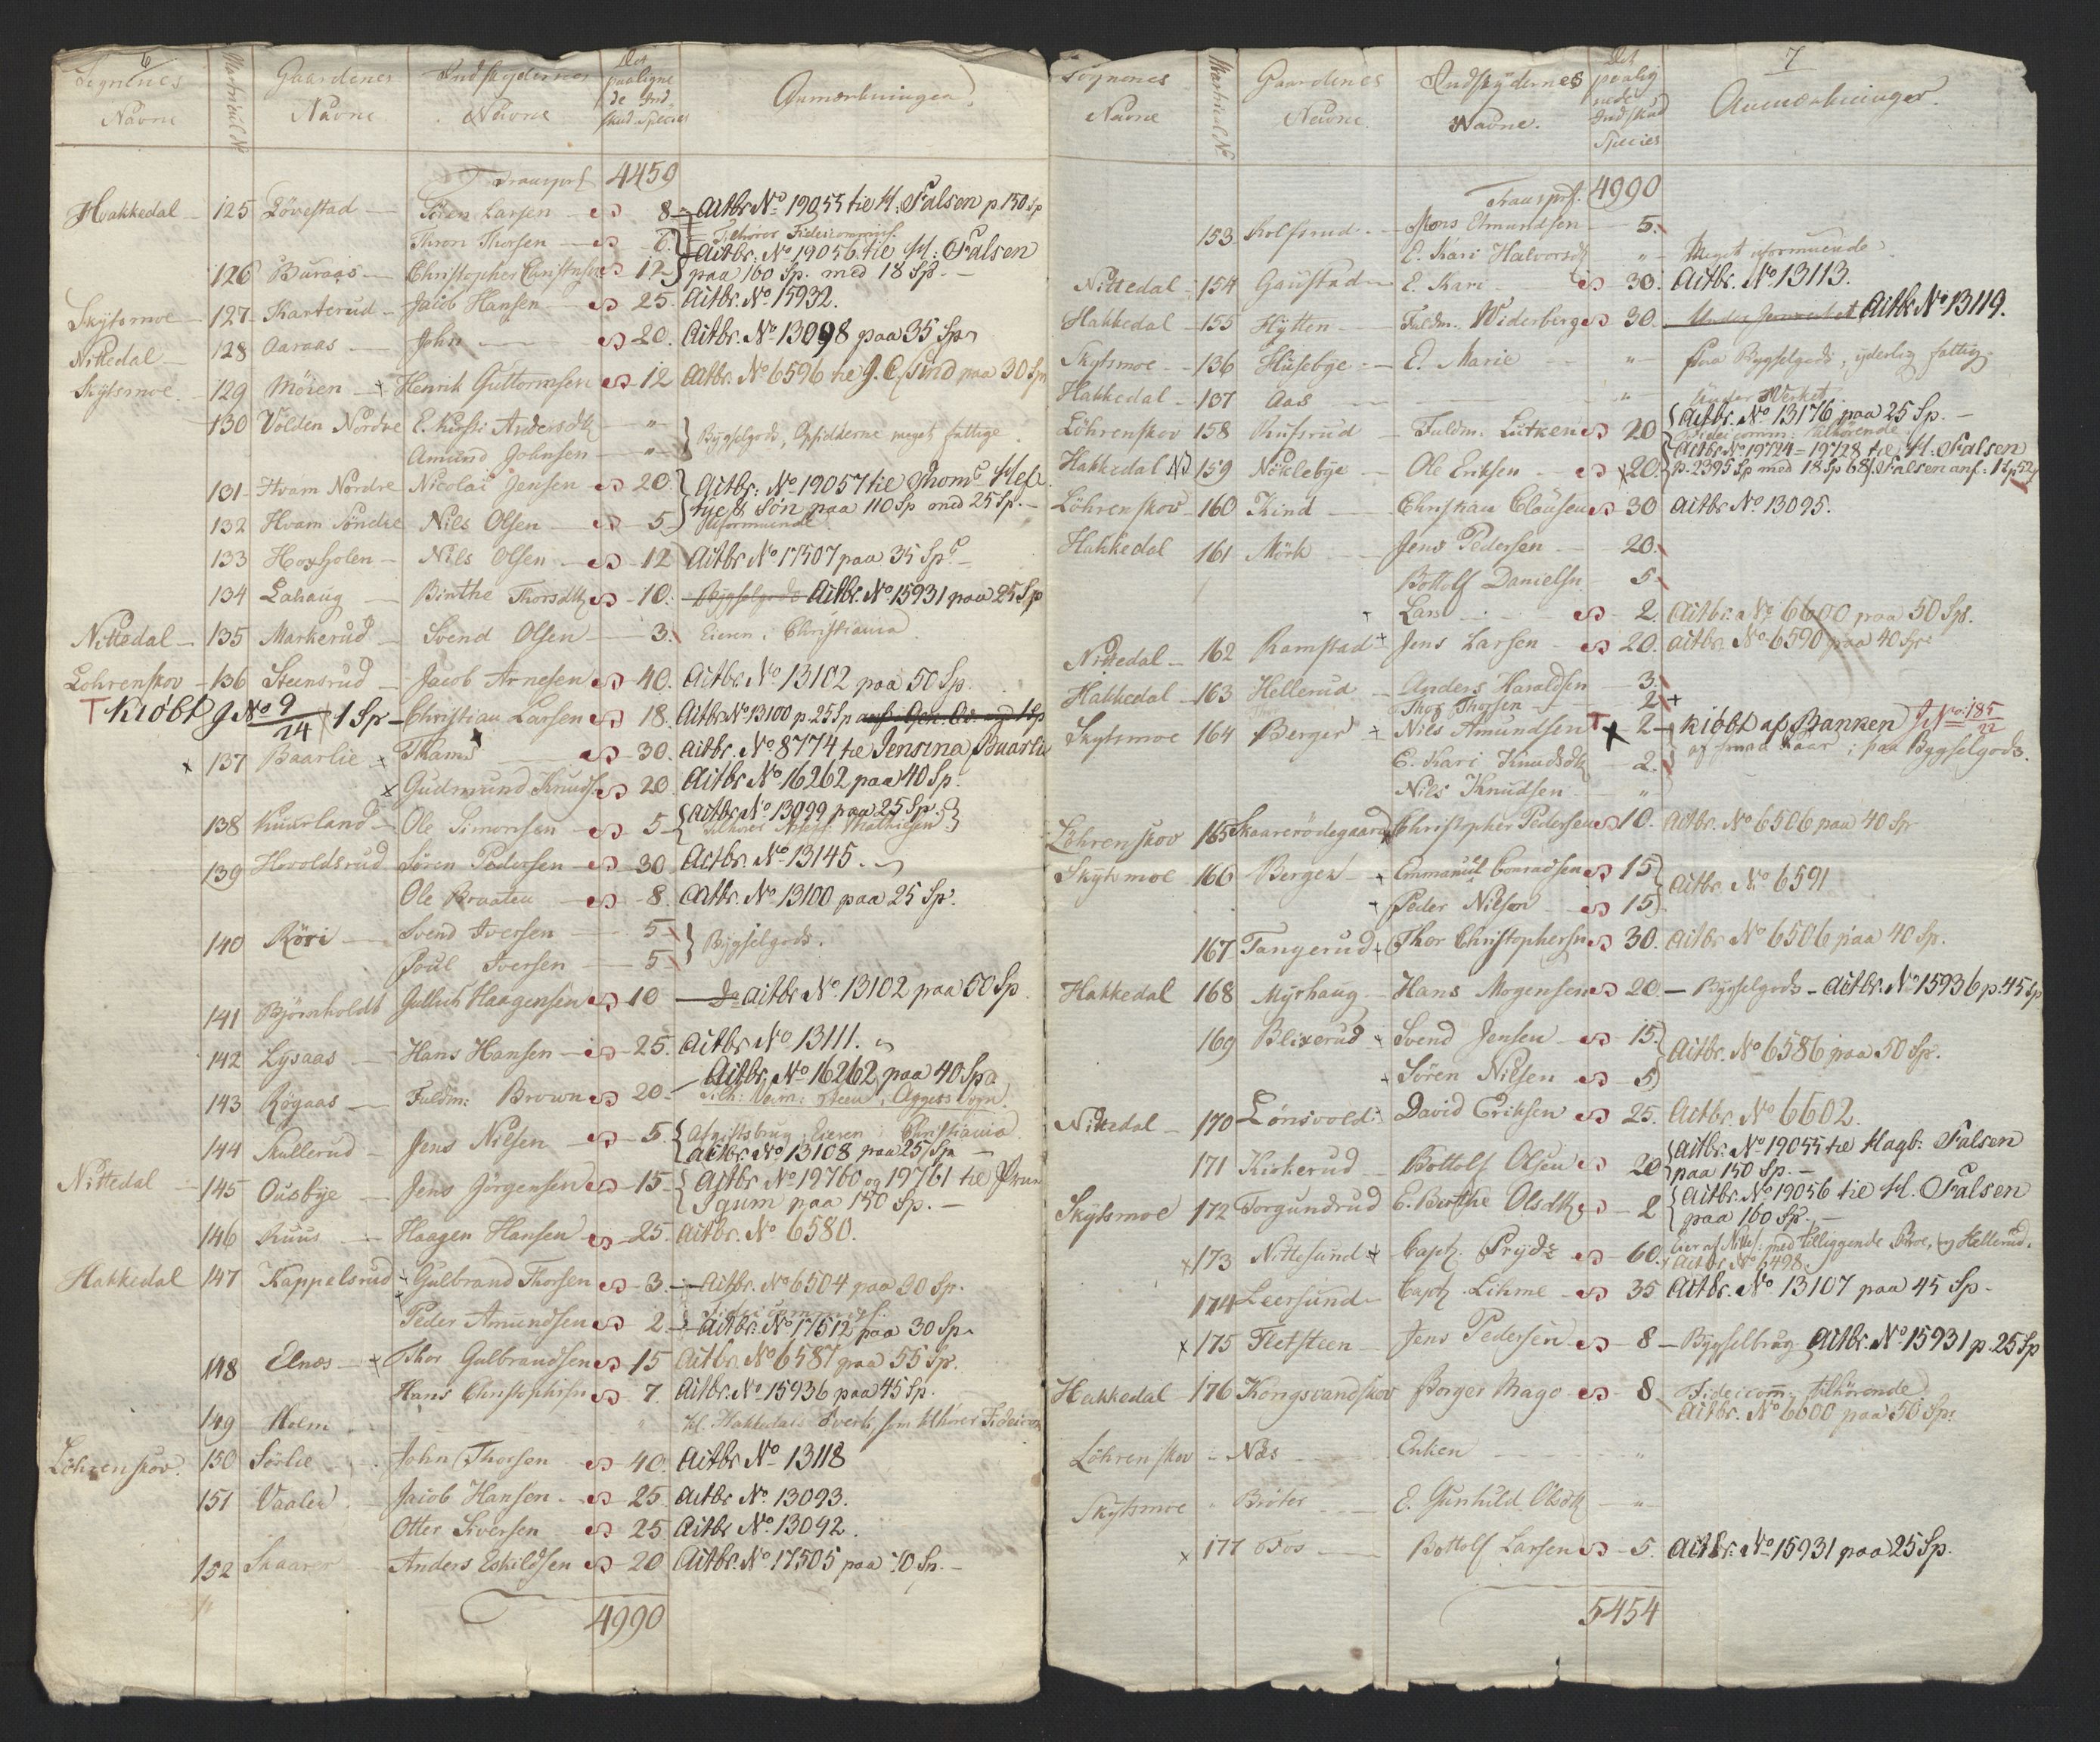 6
Sognenes Navne | Matricul No | Gaardenes Navne | Indskydernes Navne | Det paaligne de Ind skud Species | Anmærkninger
Transport 4459
Hakkedal 125 Lövestad Sören Larsen 8 Actbr. No 19055 til H. Falsen p. 150 Sp
Thron Thorsen 6 Tilhører Fideicommiss.
Actbr. No 19056 til H. Falsen
126 Buraas Christopher Christensen 12 paa 160 Sp. med 18 Sp.
Skytsmoe 127 Karterud Jacob Hansen 25. Actbr. No 15932.
Nittedal 128 Aaraas John 20. Actbr. No 13098 paa 35 Sp
Skytsmoe 129 Möien Henrik Guttormsen 12 Actbr. No 6596 til J. C. Sind paa 30 Sp
130 Volden Nordre E. Kirsti Andersdtr "
Amund Johnsen " Bygselgods, Opsidderne meget fattige.
131 Hvam Nordre Nicolai Jensen 20 Actbr. No 19057 til Thoms Hef
tye & Søn paa 110 Sp med 25 Sp.
132 Hvam Söndre Nils Olsen 5 Uformuende
133 Hoxholen Nils Olsen 12 Actbr No 17507 paa 35 Sp
134 Lahaug Birthe Thorsdtr 10. Bygselgods Actbr. No 15931 paa 25 Sp
Nittedal 135 Markerud Svend Olsen 3. Eieren i Christiania
Lohrenskov 136 Steensrud Jacob Arnesen 40. Actbr No 13102 paa 50 Sp.
T Kiöbt J No 9/24 1 Sp Christian Larsen 18. Actbr No 13100 p. 25 Sp
137 Baarlie Thams 30. Actbr. No 8774 til Jensina Baarlie
Gudmund Knuds. 20 Actbr No 16262 paa 40 Sp.
138 Kuurland Ole Simonsen 5 Actbr No 13099 paa 25 Sp.
Tilhører Mathiesen
139 Horoldsrud Sören Pedersen 30 Actbr. No 13145.
Ole Braaten 8. Actbr. No 13100 paa 25 Sp.
140 Röxi Svend Iversen 5
Poul Iversen 5 Bygselgods.
141 Björnholdt Gullich Haagensen 10 do Actbr No 13102 paa 50 Sp
142 Lysaas Hans Hansen 25. Actbr No 13111.
143 Rögaas Fuldm: Brown 20 Actbr. No 16262 paa 40 Sp
Aggers Sogn.
144 Skullerud Jens Nilsen 5. Afgiftsbrug, Eieren i Christiania
Actbr No 13108 paa 25 Sp
Nittedal 145 Ousbye Jens Jörgensen 15 Actbr No 19760 og 19761 til
paa 150 Sp.
146 Ruus Haagen Hansen 25. Actbr. No 6580.
Hakkedal 147 Kappelsrud Gulbrand Thorsen 3. Actbr. No 6504 paa 30 Sp.
Peder Amundsen 2 Fideicommiss.
Actbr. No 17512 paa 30 Sp.
148 Elnæs Thor Gulbrandsen 15 Actbr No 6587 paa 55 Sp.
Hans Christophersen 7. Actbr. No 15936 paa 45 Sp.
149 Holm " til Hakkedals Værk, som tilhører Fideicom
Löhrenskov. 150 Sörlie John Thorsen 40. Actbr No 13118
151 Vaaler Jacob Hansen 25 Actbr No. 13093.
Otter Siversen 25 Actbr No. 13092.
152 Skaarer Anders Eskildsen 20 Actbr. No 17505 paa 70 Sp.
4990
7
Sognenes Navne | Matricul No | Gaardenes Navne | Indskydernes Navne. | Det paalig nede Indskud Species | Anmærkninger.
Transport. 4990
153 Rolfsrud Mons Amundsen 5.
E. Kari Halvorsdtr " Meget uformuende
Nittedal 154 Gaustad E. Kari 30. Actbr. No 13113.
Hakkedal 155 Hytten Fuldm. Widerberg 30. Under Jernværket Actbr No 13119.
Skytsmoe 136 Husebye E. Marie " paa Bygselgods, yderlig fattig
Hakkedal 157 Aas " Under Værket
Löhrenskov 158 Russrud Fuldm. Lütken 20 Actbr. No 13176 paa 25 Sp.
Fideicomm: tilhörende
Hakkedal 159 Nöklebye Ole Eriksen 20. Actbr No 19724 - 19728 til H. Falsen
p. 2395 Sp med 18 Sp 68 s. Falsen anf. 1 Sp 52 s
Löhrenskov 160 Kind Christian Clausen 30 Actbr No 13095.
Hakkedal 161 Mörk Jens Pedersen 20.
Bottolf Danielsn 5
Lars 2. Actbr. No 6600 paa 50 Sp.
Nittedal 162 Ramstad Jens Larsen 20. Actbr. No 6590 paa 40 Sp
Hakkedal 163 Hellerud Anders Haraldsen 3.
Thor Thorsen 2
Skytsmoe 164 Berger Nils Amundsen T 2 Kiöbt af Banken J No 185/22
E. Kari Knudsdtr 2. af smaa Kaar; paa Bygselgods.
Nils Knudsen "
Löhrenskov 165 Skaarerödegaard Christopher Pedersen 10. Actbr. No 6506 paa 40 Sp
Skytsmoe 166 Berger Emmanuel Conradsen 15
Peder Nilsen 15 Actbr No 6591
167 Tangerud Thor Christophersn 30. Actbr No 6506 paa 40 Sp.
Hakkedal 168 Myrhaug Hans Mogensen 20. Bygselgods Actbr. No 15936 p. 45 Sp
169 Blixerud Svend Jensen 15.
Sören Nilsen 5 Actbr. No 6586 paa 50 Sp.
Nittedal 170 Lönsvold David Eriksen 25. Actbr. No 6602.
171 Kirkerud Bottolf Olsen 20 Actbr. No 19055 til Hagb. Falsen
paa 150 Sp.
Skytsmoe 172 Torgundrud E. Birthe Olsdtr 2 Actbr. No 19056 til H. Falsen
paa 160 Sp.
173 Nittesund Capt. Prydz 60. Eier af Nittes: med tilliggende Broe, og Hellerud.
Actbr No 6498.
174 Leersund Capt. Lihme 35 Actbr. No 13107 paa 45 Sp.
175 Fletsteen Jens Pedersen 8 Bygselbrug Actbr. No 15931 p. 25 Sp
Hakkedal 176 Kongsvandskov Borger Mago 8. Fideicom: tilhörende
Actbr. No 6600 paa 50 Sp.
Löhrenskov Næs Enken "
Skytsmoe Bröter E. Gunhild Olsdtr "
177 Bottolf Larsen 5. Actbr. No 15931 paa 25 Sp.
5454